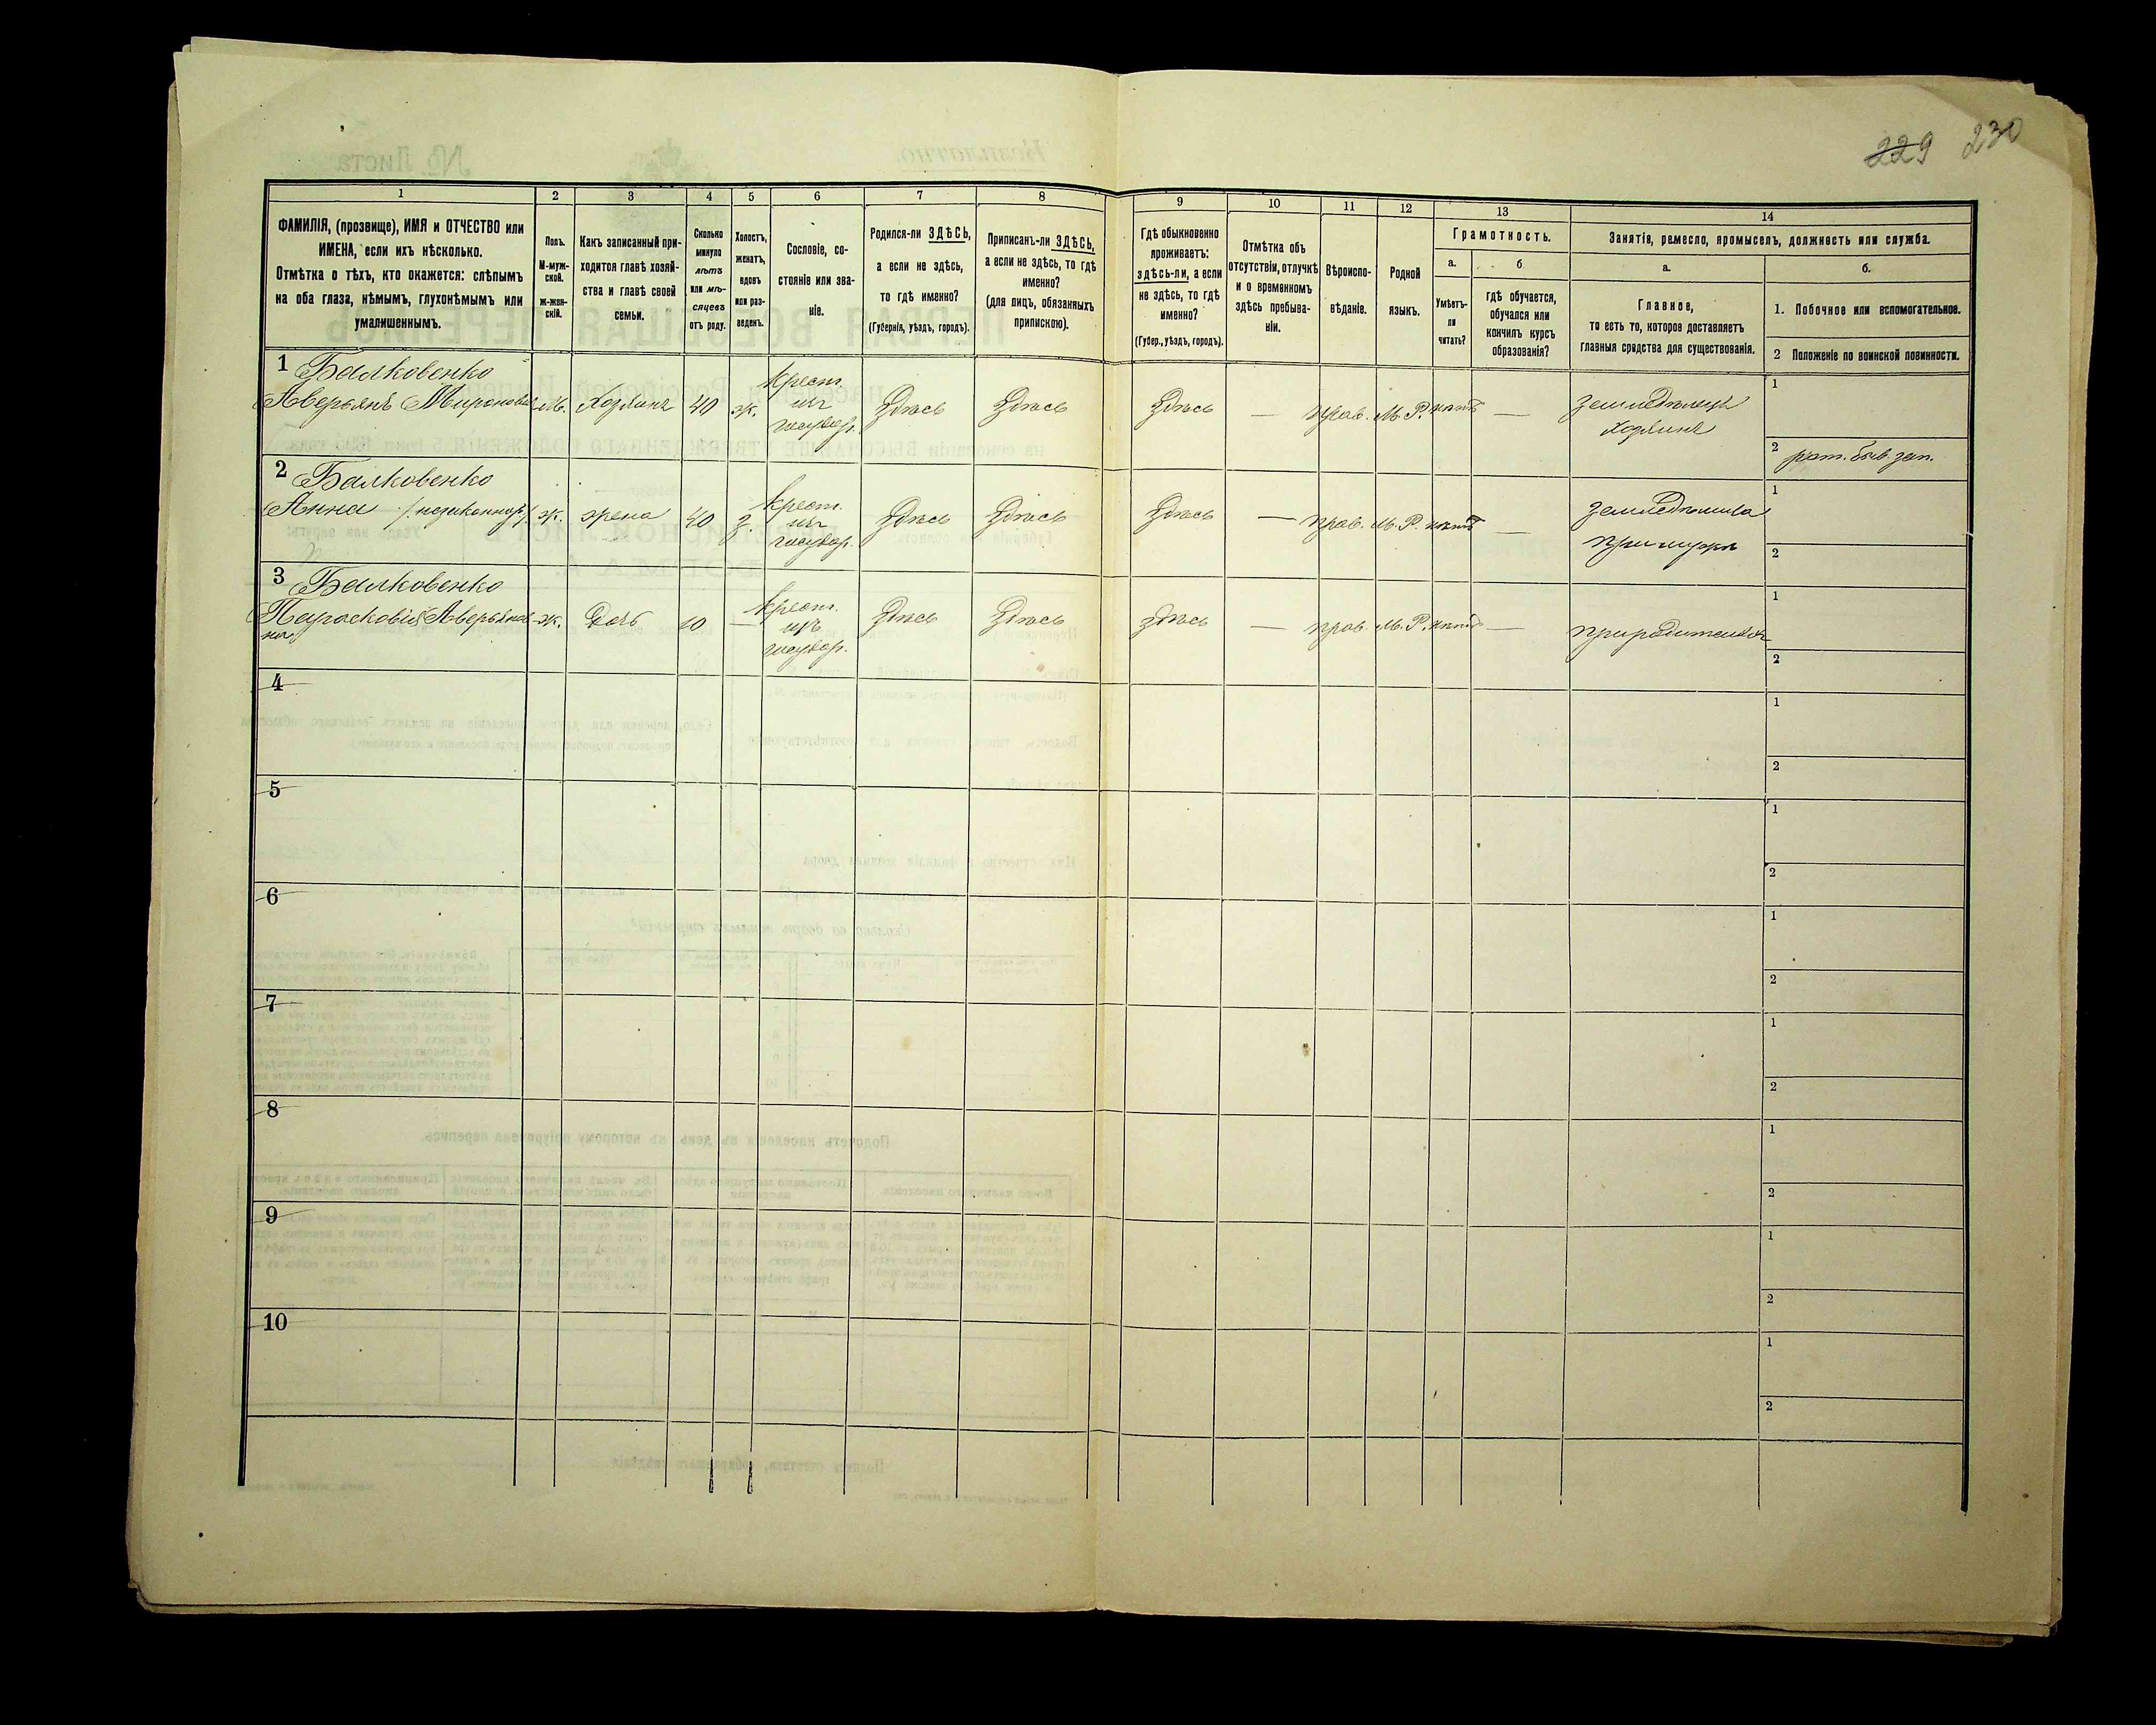 229 230
1 2 3 4 5 6 7 8 9 10 11 12 13 14
ФАМИЛІЯ, (прозвище), ИМЯ и ОТЧЕСТВО или
ИМЕНА, если ихъ нѣсколько.
Отмѣтка о тѣхъ, кто окажется: слѣпымъ
на оба глаза, нѣмымъ, глухонѣмымъ или
умалишеннымъ.
Полъ.
М-муж-
ской.
Ж-жен-
скій.
Какъ записанный при-
ходится главѣ хозяй-
ства и главѣ своей
семьи.
Сколько
минуло
лѣтъ
или мѣ-
сяцевъ
отъ роду.
Холостъ,
женатъ,
вдовъ
или раз-
веденъ.
Сословіе, со-
стояніе или зва-
ніе.
Родился-ли ЗДѢСЬ,
а если не здѣсь,
то гдѣ именно?
(Губернія, уѣздъ, городъ).
Приписанъ-ли ЗДѢСЬ,
а если не здѣсь, то гдѣ
именно?
(для лицъ, обязанныхъ
припискою).
Гдѣ обыкновенно
проживаетъ:
здѣсь-ли, а если
не здѣсь, то гдѣ
именно?
(Губер., уѣздъ, городъ).
Отмѣтка объ
отсутствіи, отлучкѣ
и о временномъ
здѣсь пребыва-
ніи.
Вѣроиспо-
вѣданіе.
Родной
языкъ.
Грамотность.
а.
Умѣетъ-
ли
читать?
б
гдѣ обучается,
обучался или
кончилъ курсъ
образованія?
Занятіе, ремесло, промыселъ, должность или служба.
а.
Главное,
то есть то, которое доставляетъ
главныя средства для существованія.
б.
1. Побочное или вспомогательное.
2 Положеніе по воинской повинности.
1 Балковенко
Аверьянъ Мироновъ м. хозяинъ 40 ж. крест. изъ государ. Здѣсь Здѣсь Здѣсь — прав. М.Р. нѣтъ — земледѣлецъ хозяинъ
1
2 рат. быв. зап.
2 Балковенко
Анна /незаконнор./ ж. жена 40 з. крест. изъ государ. Здѣсь Здѣсь Здѣсь — прав. М.Р. нѣтъ —
при мужѣ
1
2
3 Балковенко
Парасковія Аверьянов
на ж. дочь 10 — крест. изъ государ. Здѣсь Здѣсь здѣсь — прав. М.Р. нѣтъ — при родителяхъ
1
2
4
1
2
5
1
2
6
1
2
7
1
2
8
1
2
9
1
2
10
1
2